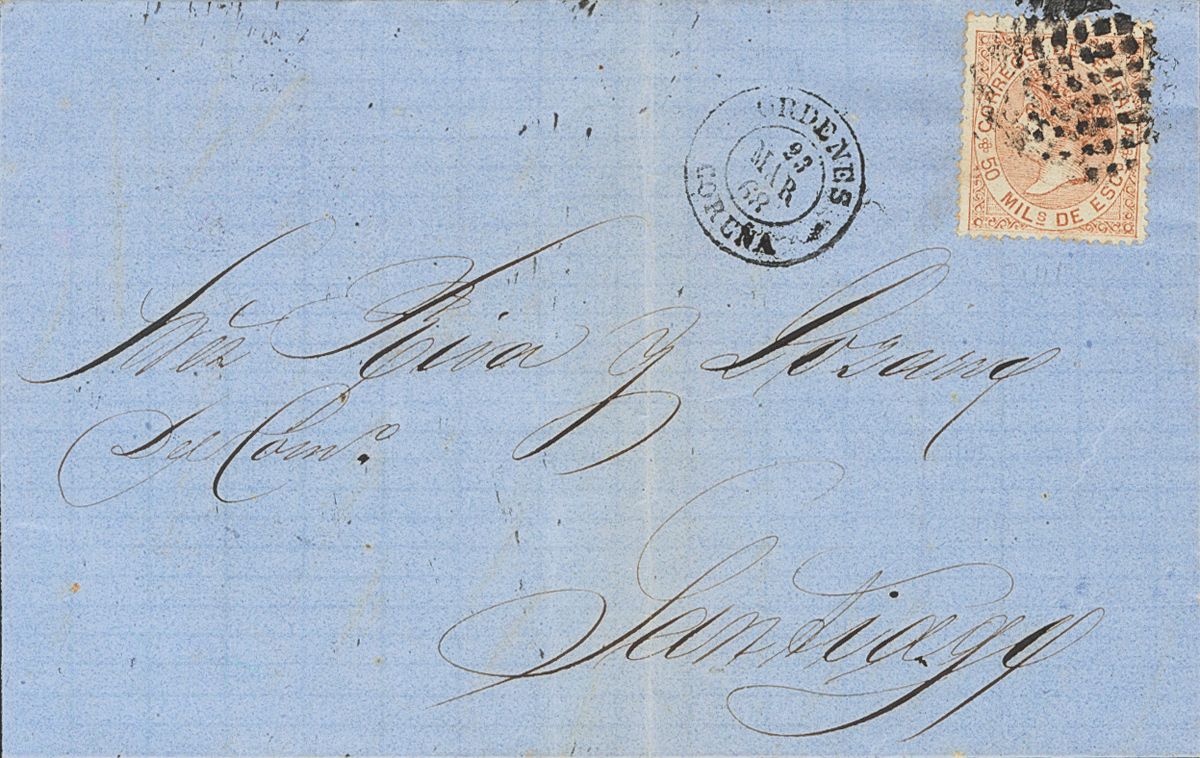 ORDENES
23
MAR
68
CORUÑA
CORREOS
50 MILS DE ESC
Sres Riva y Lozano
Del Comº.
Santiago